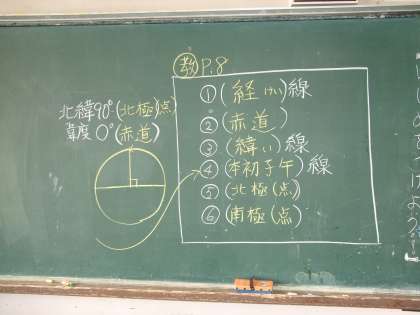 教 P.8
①(経けい)線
②(赤道)
③(緯い)線
④(本初子午)線
⑤(北極(点)
⑥(南極(点)
北緯90°(北極)点)
緯度0°(赤道)
じめをつけよう!